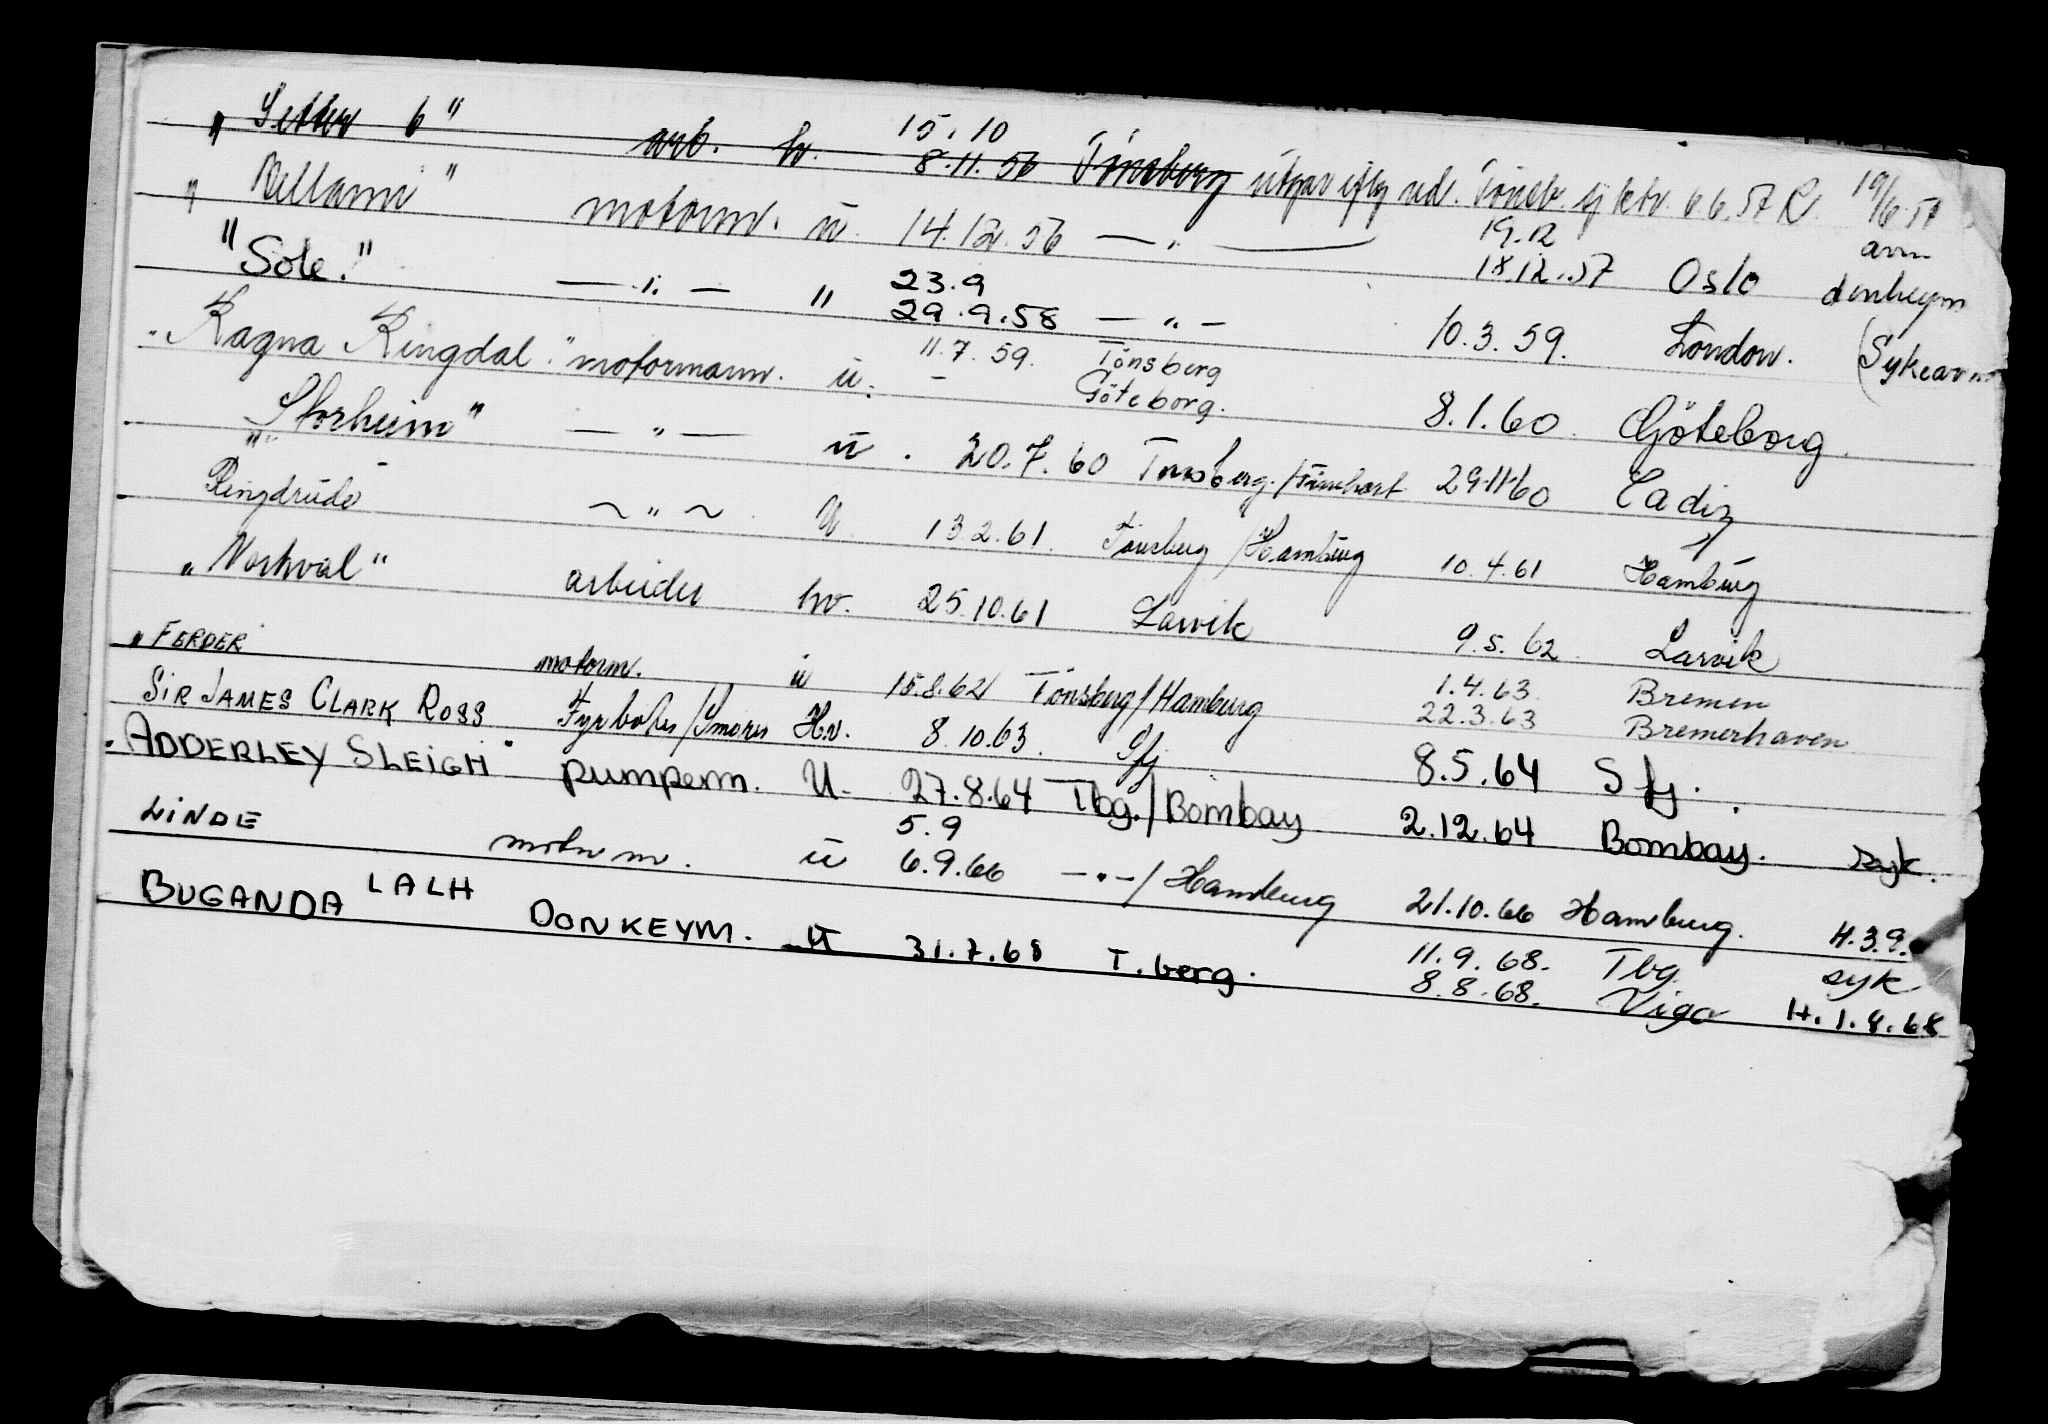 „Setter 6" arb. hv. 15.10 8.11.56 Tönsberg utgår iflg. 6.6.57 R. 19/6.57
„Bellami" motorm. u. 14.12.56 — „ — 19.12 18.12.57 Oslo avm
"Sole." — „ — " 23.9 29.9.58 — „ — 10.3.59. London. (Sykeavm
„Ragna Ringdal." motormann. u. 11.7.59. - Tönsberg Göteborg. 8.1.60. Göteborg.
„Storheim" — „ — u. 20.7.60 Tönsberg/ 29.11.60 Cadiz
Ringdrude ~ „ ~ U. 13.2.61. Tönsberg/Hamburg 10.4.61 Hamburg
„Norhval" arbeider hv. 25.10.61 Larvik 9.5.62 Larvik
„FERDER motorm. u 15.8.62 Tönsberg/Hamburg 1.4.63 Bremen 22.3.63 Bremerhaven
SIR JAMES CLARK ROSS Fyrböter/Smörer Hv. 8.10.63. Sfj 8.5.64 Sfj.
„ADDERLEY SLEIGH" pumpem. U. 27.8.64 Tbg./Bombay 2.12.64 Bombay. syk.
LINDE motorm. u 5.9 6.9.66 —„—/Hamburg 21.10.66 Hamburg. H.3.9.
BUGANDA LALH DONKEYM. U 31.7.68 T.berg. 11.9.68. Tbg. syk 8.8.68. Vigo H.1.8.68